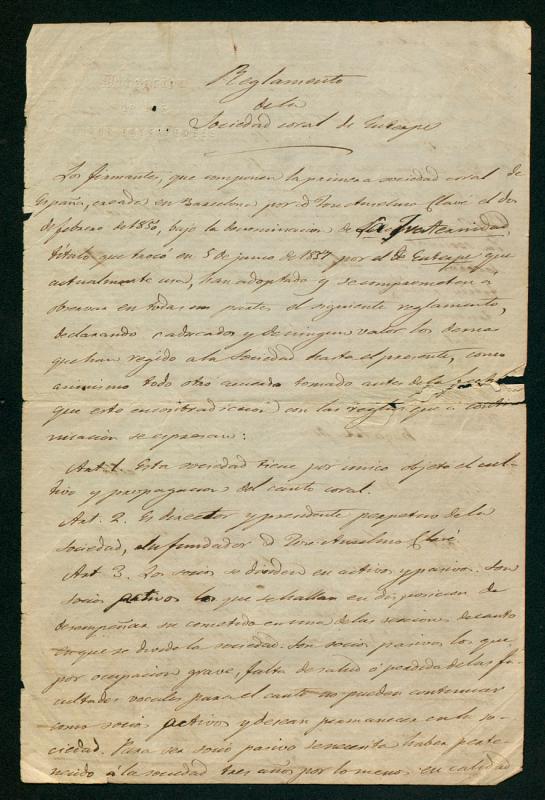 Reglamento
de la
Sociedad coral de Euterpe
Los firmantes, que componen la primera sociedad coral de
España, creada en Barcelona por D. José Anselmo Clavé el dos
de febrero de 1850, bajo la denominacion de La Fraternidad,
título que trocó en 5 de junio de 1857 por el de Euterpe que
actualmente usa, han adoptado y se comprometen a
observar en todas sus partes el siguiente reglamento,
declarando caducados y de ningun valor los demas
que han regido a la Sociedad hasta el presente, como
asimismo todo otro acuerdo tomado antes de la
que este en contradiccion con las reglas que a conti-
nuacion se espresan:
Art 1. Esta sociedad tiene por unico objeto el cul-
tivo y propagacion del canto coral.
Art. 2. Es director y presidente perpetuo de la
Sociedad, su fundador D. José Anselmo Clavé
Art 3. Los socios se dividen en activos y pasivos. Son
socios activos los que se hallan en disposicion de
desempeñar su cometido en una de las secciones de canto
en que se divide la sociedad. Son socios pasivos los que
por ocupacion grave, falta de salud ó perdida de las fa-
cultades vocales para el canto no pueden continuar
como socios activos y desean permanecer en la so-
ciedad. Para ser socio pasivo se necesita haber perte-
necido á la sociedad tres años por lo menos en calidad